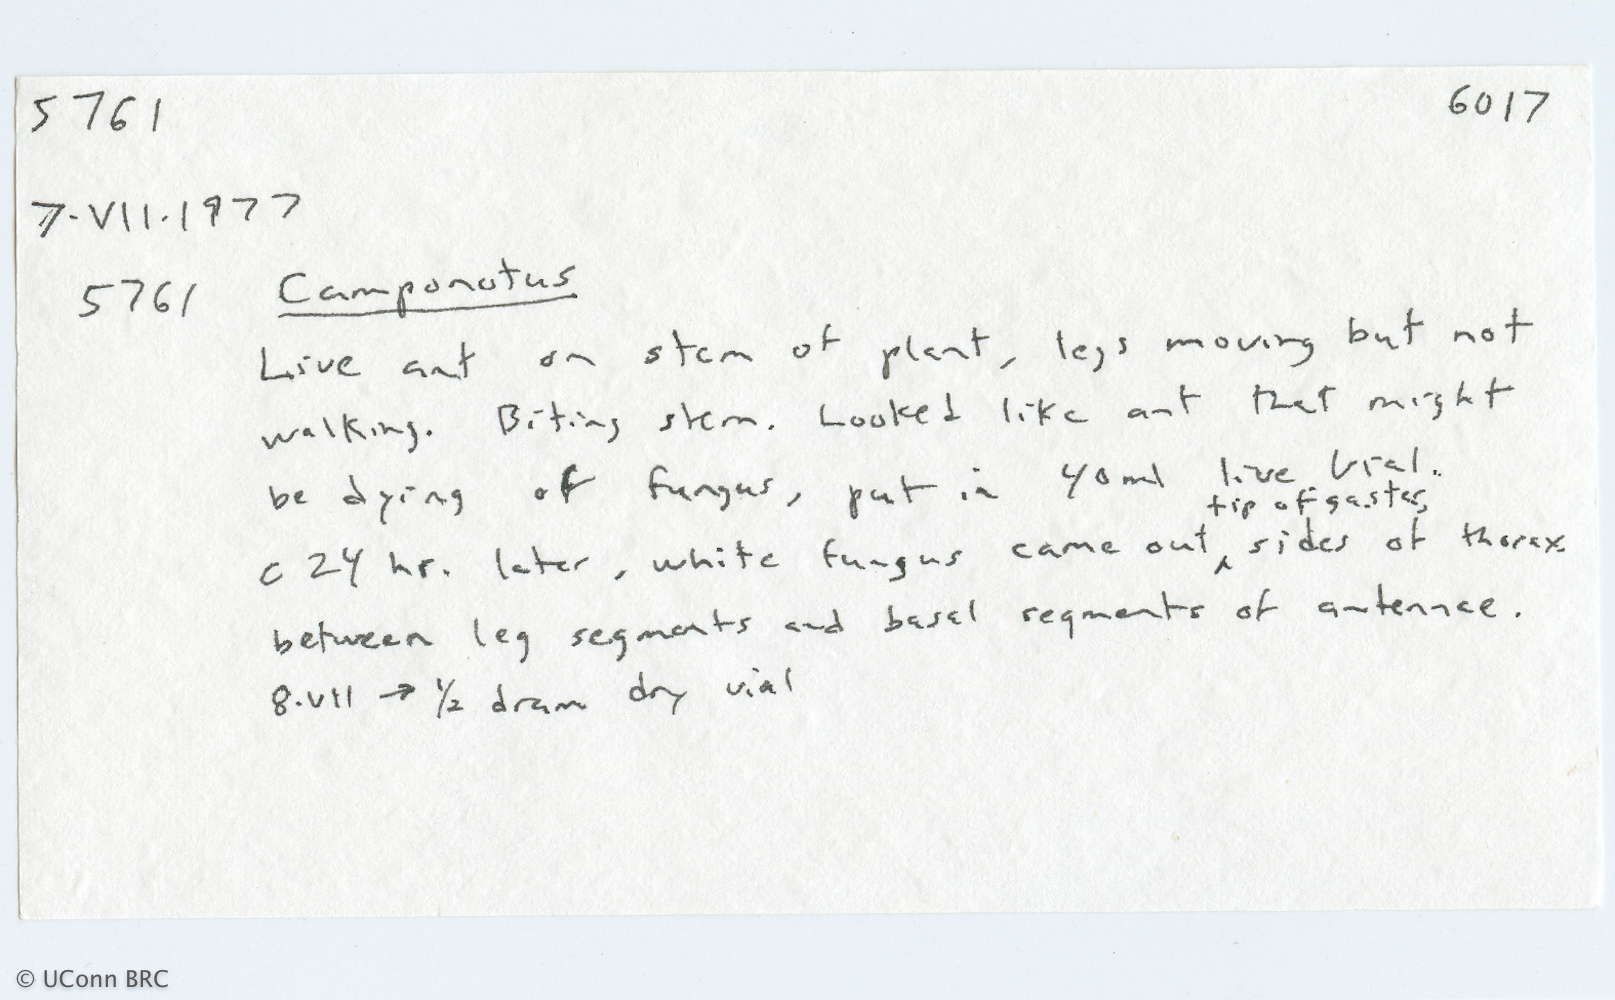 5761 6017
7.VII.1977
5761 Camponotus
Live ant on stem of plant, legs moving but not
walking. Biting stem. Looked like ant that might
be dying of fungus, put in 40ml live vial.
tip of gaster,
c 24 hr. later, white fungus came out ^ sides of thorax
between leg segments and basal segments of antennae.
8.VII → 1/2 dram dry vial
© UConn BRC